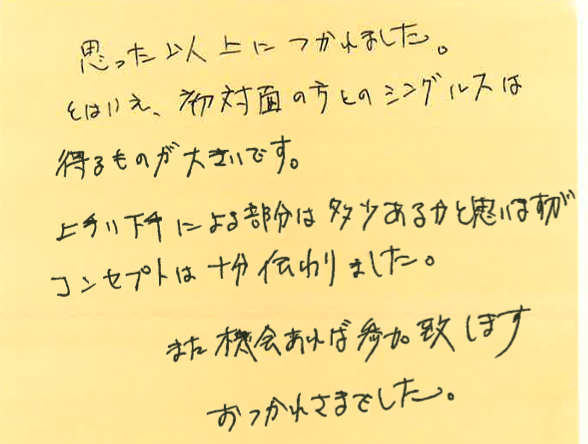 思った以上につかれました。
とはいえ、初対面の方とのシングルスは
得るものが大きいです。
上手い下手による部分は多少あるかと思いますが
コンセプトは十分伝わりました。
また機会あれば参加致します
おつかれさまでした。